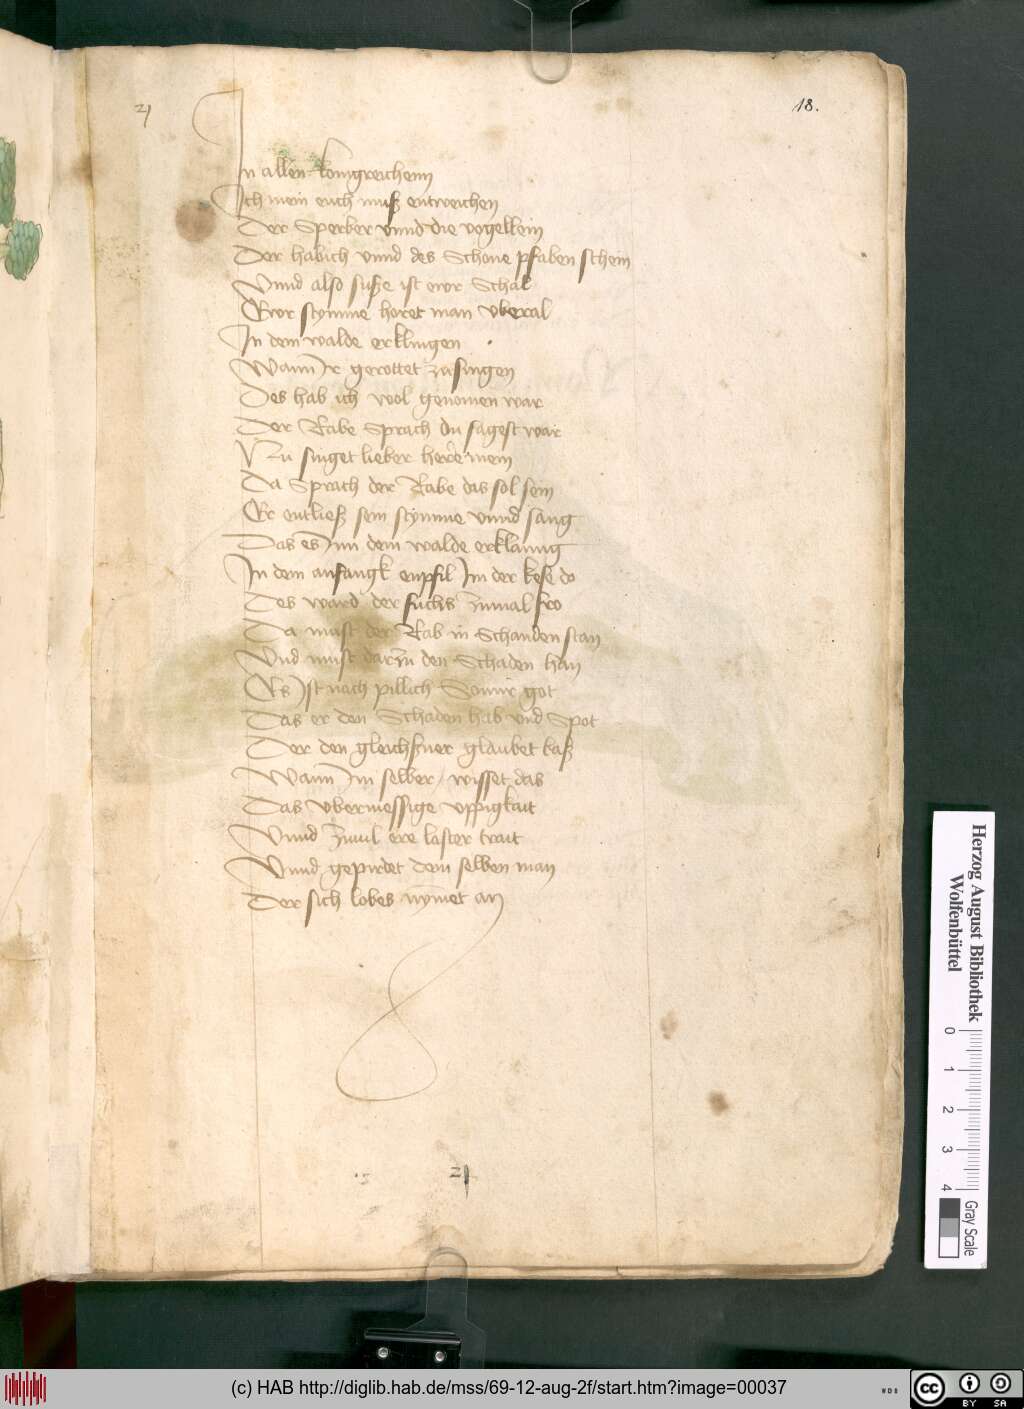 21
18.
In allen konigreichenn
Ich mein euch muß entweichen
Der Sperber vnnd die vogellein
Der habich vnnd des Schone pfaben schein
Vnnd also suße ist ewr Schal
Ewr stymme horet man vberal
In dem walde erklingen
Wann Ir gerottet zu singen
Des hab ich wol genomen war
Der Rabe Sprach du sagest war
Nu singet lieber herre mein
Da Sprach der Rabe das sol sein
Er entließ sein stymme vnnd sang
Das es Inn dem walde erklanng
In dem anfangk enpfil Im der kese do
Des ward der fuchs zumal fro
Da must der Rab in Schanden stan
Vnd must darzu den Schaden han
Es Ist noch pillich Sannr got
Das er den Schaden hab vnd Spot
Der den gleichsner glaubet baß
Wann Im selber / wisset das
Das vbermessige vppigkait
Vnnd zuuil ere laster trait
Vnnd gepirdet dem selben man
Der sich lobes nymet an
21
Herzog August Bibliothek
Wolfenbüttel
0 1 2 3 4
Gray Scale
(c) HAB http://diglib.hab.de/mss/69-12-aug-2f/start.htm?image=00037
WDB
cc BY SA